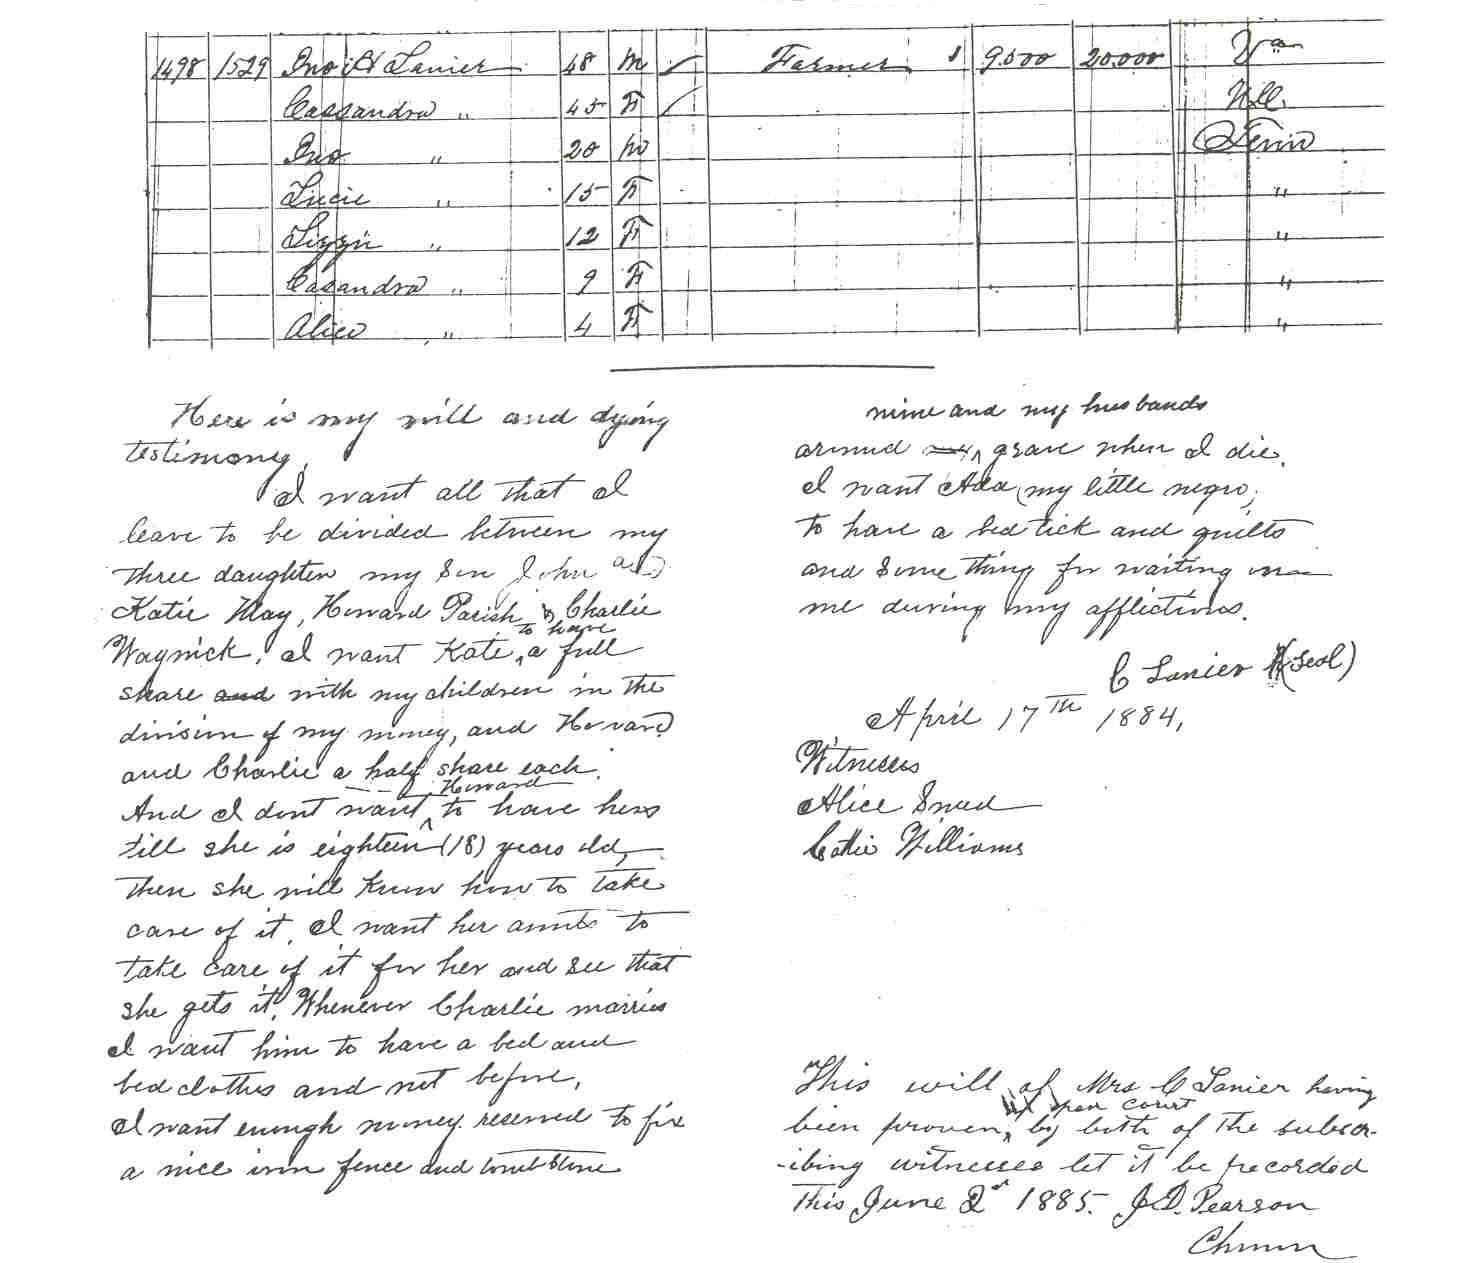 1498 1529 Jno H Lanier 48 m Farmer 1 9.000 20.000 Va
Cassandra " 45 F N.C.
Jno " 20 m Tenn
Lucie " 15 F "
Lizzie " 12 F "
Casandra " 9 F "
Alice " 4 F "
Here is my will and dying
testimony,
I want all that I
leave to be divided between my
three daughters my Son John and
Katie May, Howard Parish & Charlie
Waynick. I want Kate, to have a full
share and with my children in the
division of my money, and Howard
and Charlie a half share each.
And I dont want Howard to have hers
till she is eighteen (18) years old,
then she will know how to take
care of it. I want her aunts to
take care of it for her and see that
she gets it. Whenever Charlie marries
I want him to have a bed and
bed clothes and not before,
I want enough money reserved to fix
a nice iron fence and tombstone
mine and my husbands
around my grave when I die.
I want Ada (my little negro,
to have a bed tick and quilts
and some thing for waiting on
me during my afflictions.
C Lanier (Seal)
April 17th 1884,
Witnesses
Alice Sneed
Callie Williams
This will of Mrs C Lanier having
been proven, in open court by both of the subscr-
-ibing witnesses let it be recorded
This June 2d 1885. J.D. Pearson
Chmn